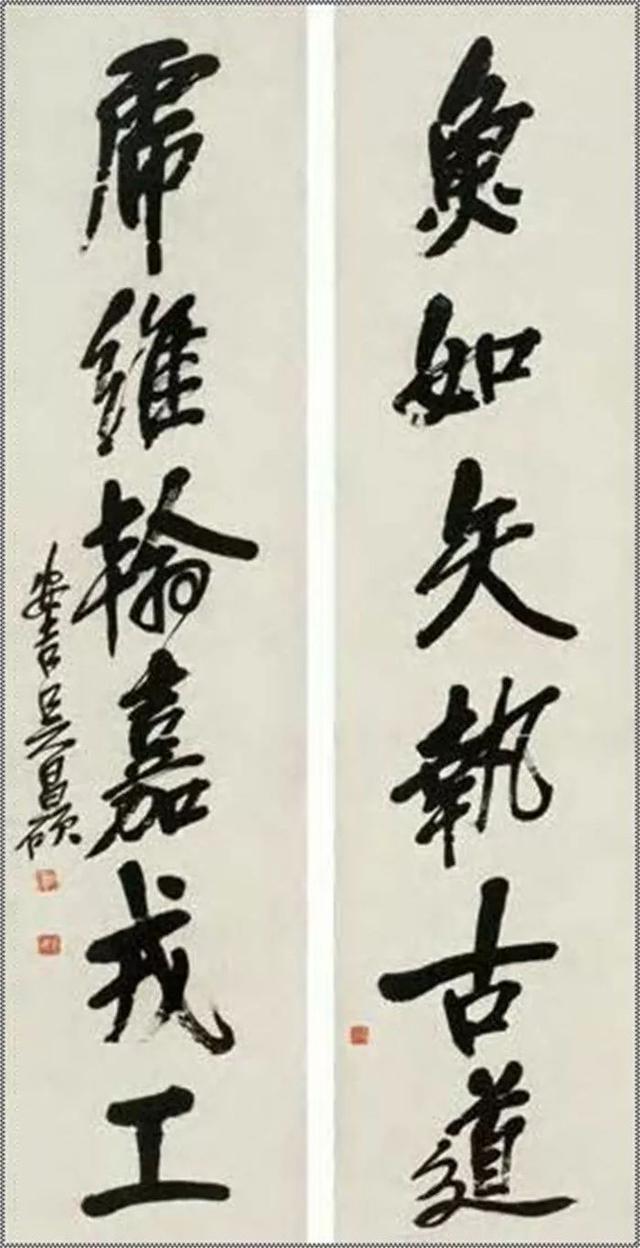 魚如矢執古道
虎維翰嘉戎工
安吉吳昌碩